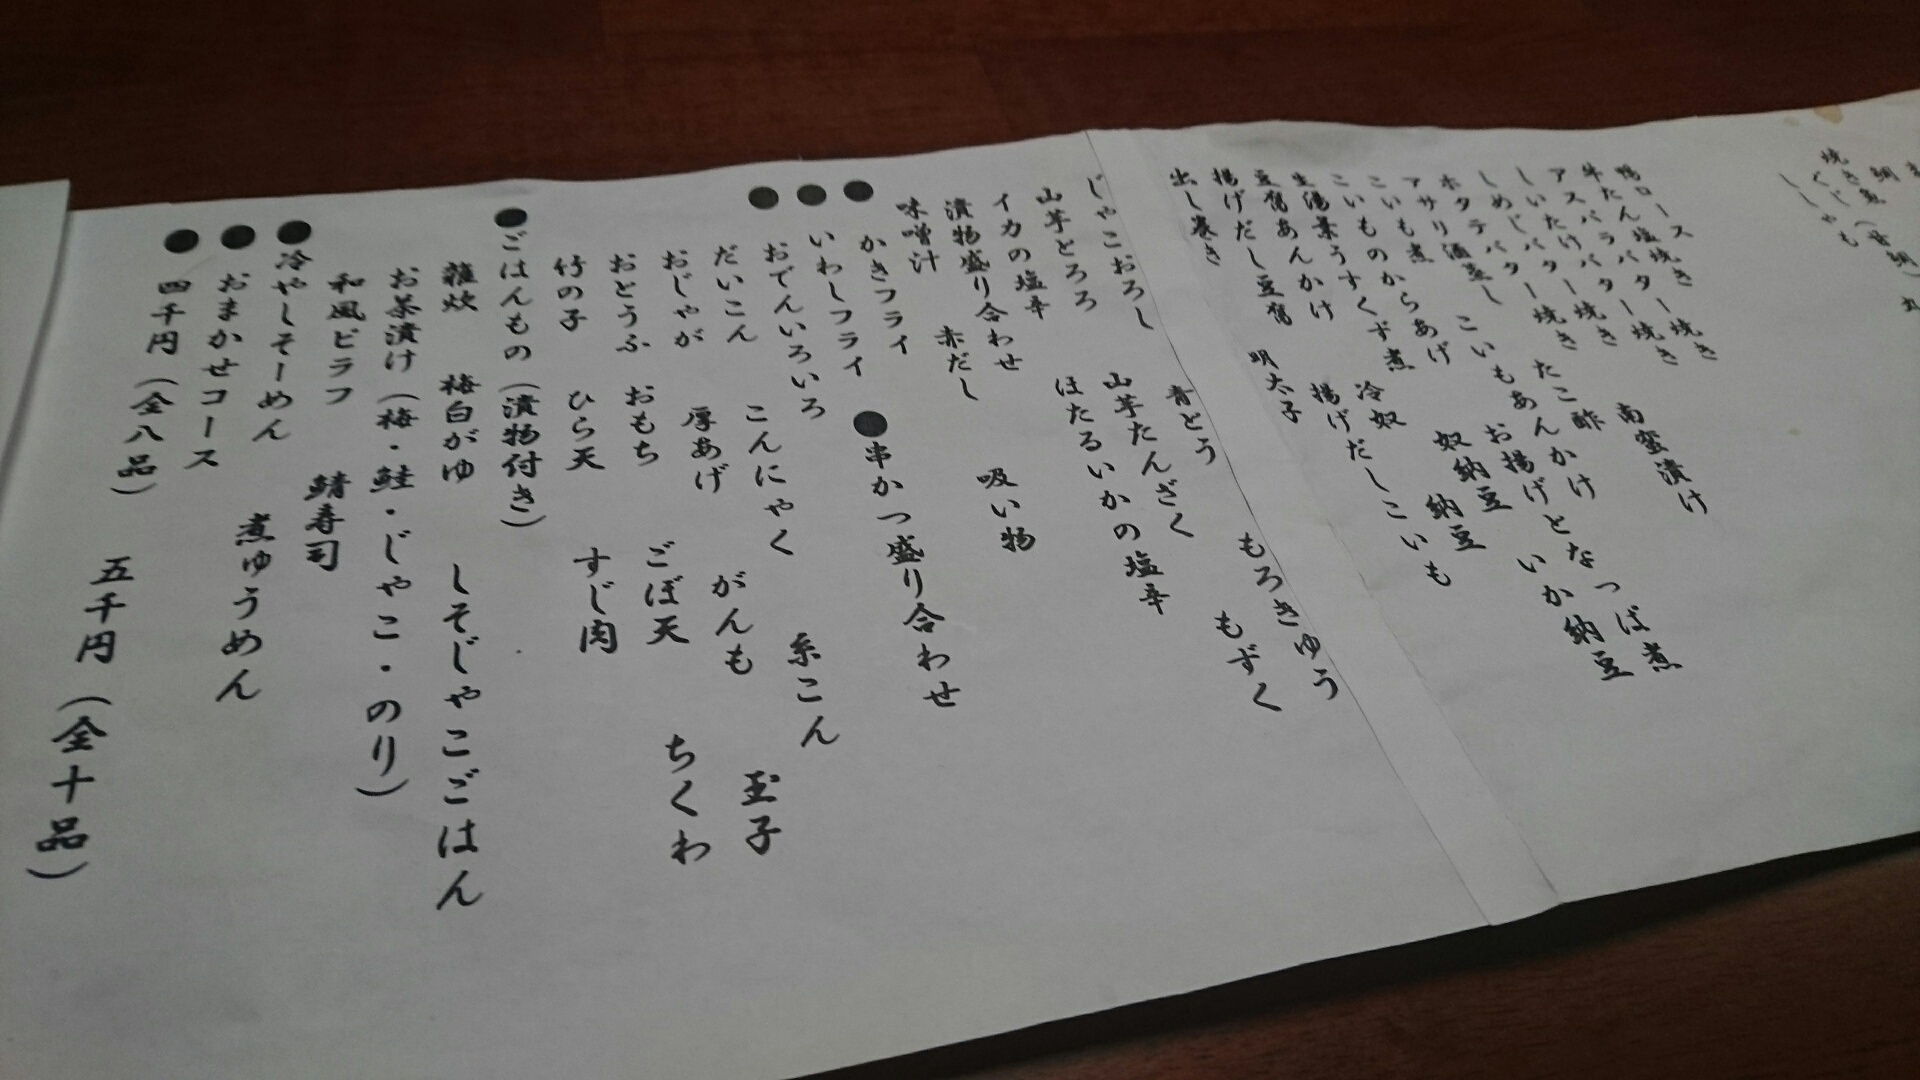 鴨ロース
牛たん塩焼き
アスパラバター焼き
しいたけバター焼き
しめじバター焼き
ホタテバター焼き 南蛮漬け
アサリ酒蒸し たこ酢
こいも煮 こいもあんかけ
こいものからあげ お揚げとなっぱ煮
生湯葉うすくず煮 奴納豆 いか納豆
豆腐あんかけ 冷奴 納豆
揚げだし豆腐 揚げだしこいも
出し巻き 明太子
じゃこおろし 青とう もろきゅう
山芋とろろ 山芋たんざく もずく
イカの塩辛 ほたるいかの塩辛
漬物盛り合わせ
味噌汁 赤だし 吸い物
●かきフライ
●いわしフライ ●串かつ盛り合わせ
●おでんいろいろ
だいこん こんにゃく 糸こん
おじゃが 厚あげ がんも 玉子
おとうふ おもち ごぼ天 ちくわ
竹の子 ひら天 すじ肉
●ごはんもの(漬物付き)
雑炊 梅白がゆ しそじゃこごはん
お茶漬け(梅・鮭・じゃこ・のり)
和風ピラフ 鯖寿司
●冷やしそーめん 煮ゆうめん
●おまかせコース
●四千円(全八品) 五千円(全十品)